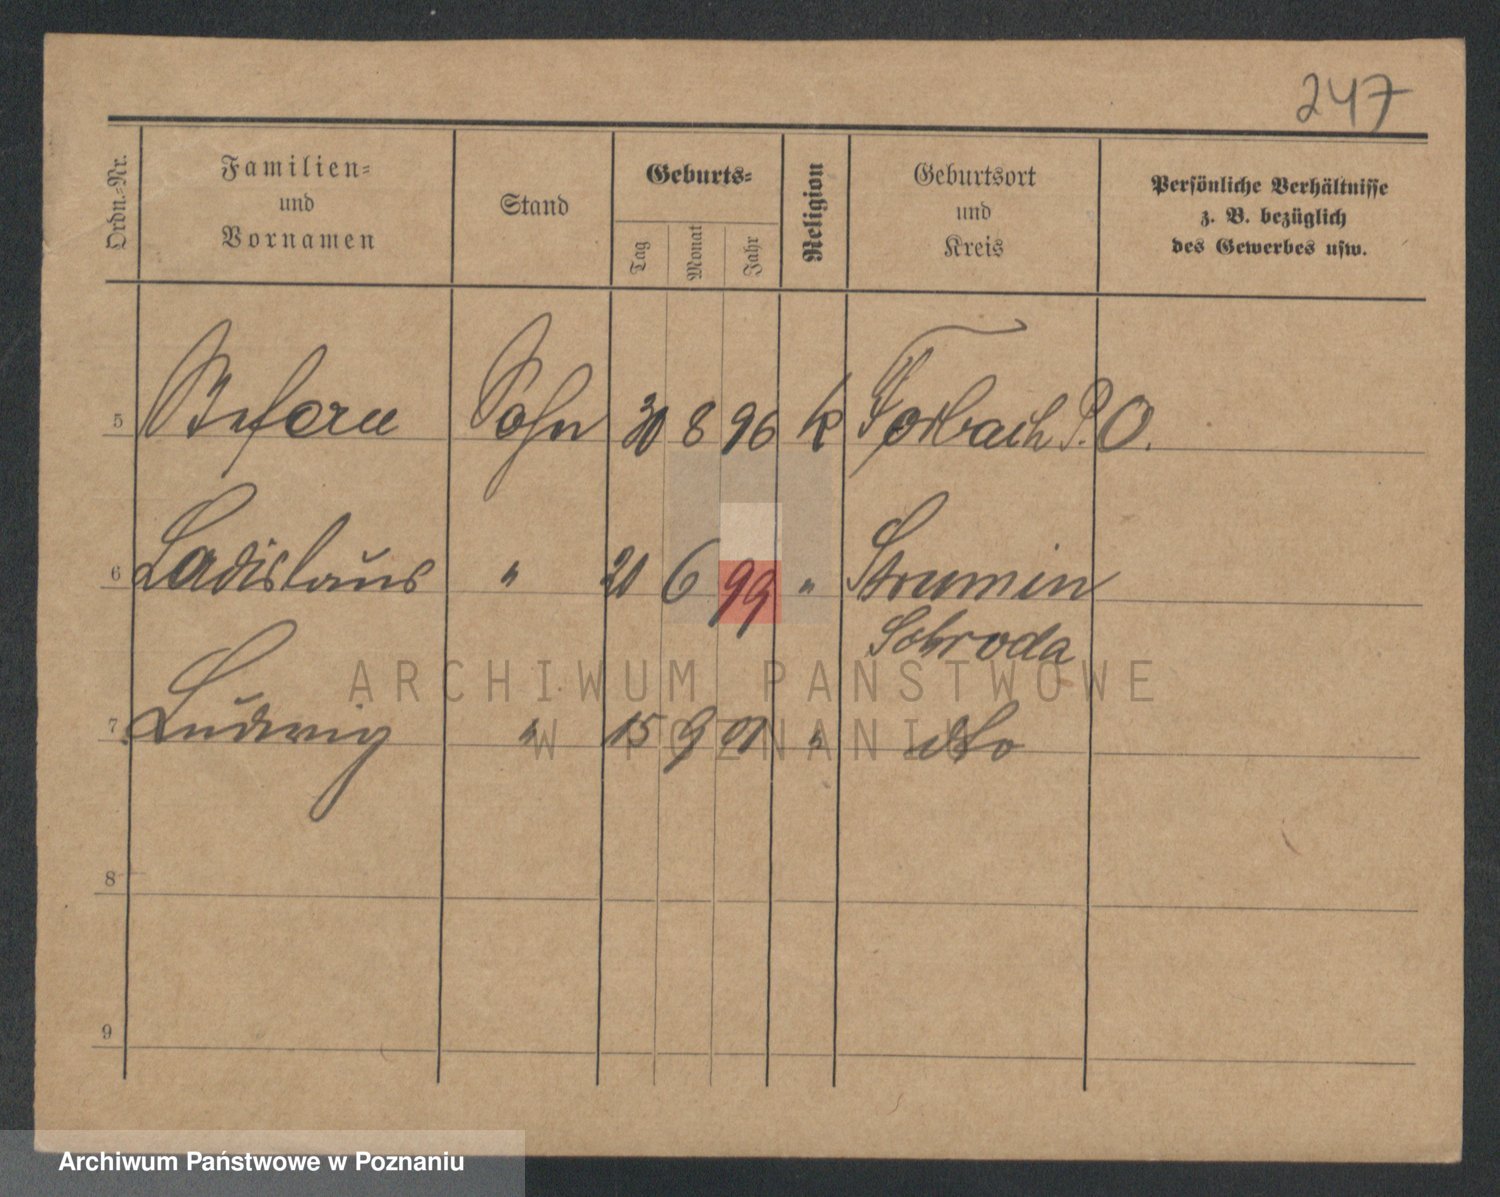 247
Ordn.-Nr.
Familien-
und
Vornamen
Stand
Geburts-
Tag
Monat
Jahr
Religion
Geburtsort
und
Kreis
Persönliche Verhältnisse
z. B. bezüglich
des Gewerbes usw.
5 Stefan Sohn 30 8 96 k Forbach P. O.
6 Ladislaus " 20 6 99 " Strumin
Schroda
7 Ludwig " 15 9 01 " dto
8
9
ARCHIWUM PAŃSTWOWE
W POZNANIU
Archiwum Państwowe w Poznaniu